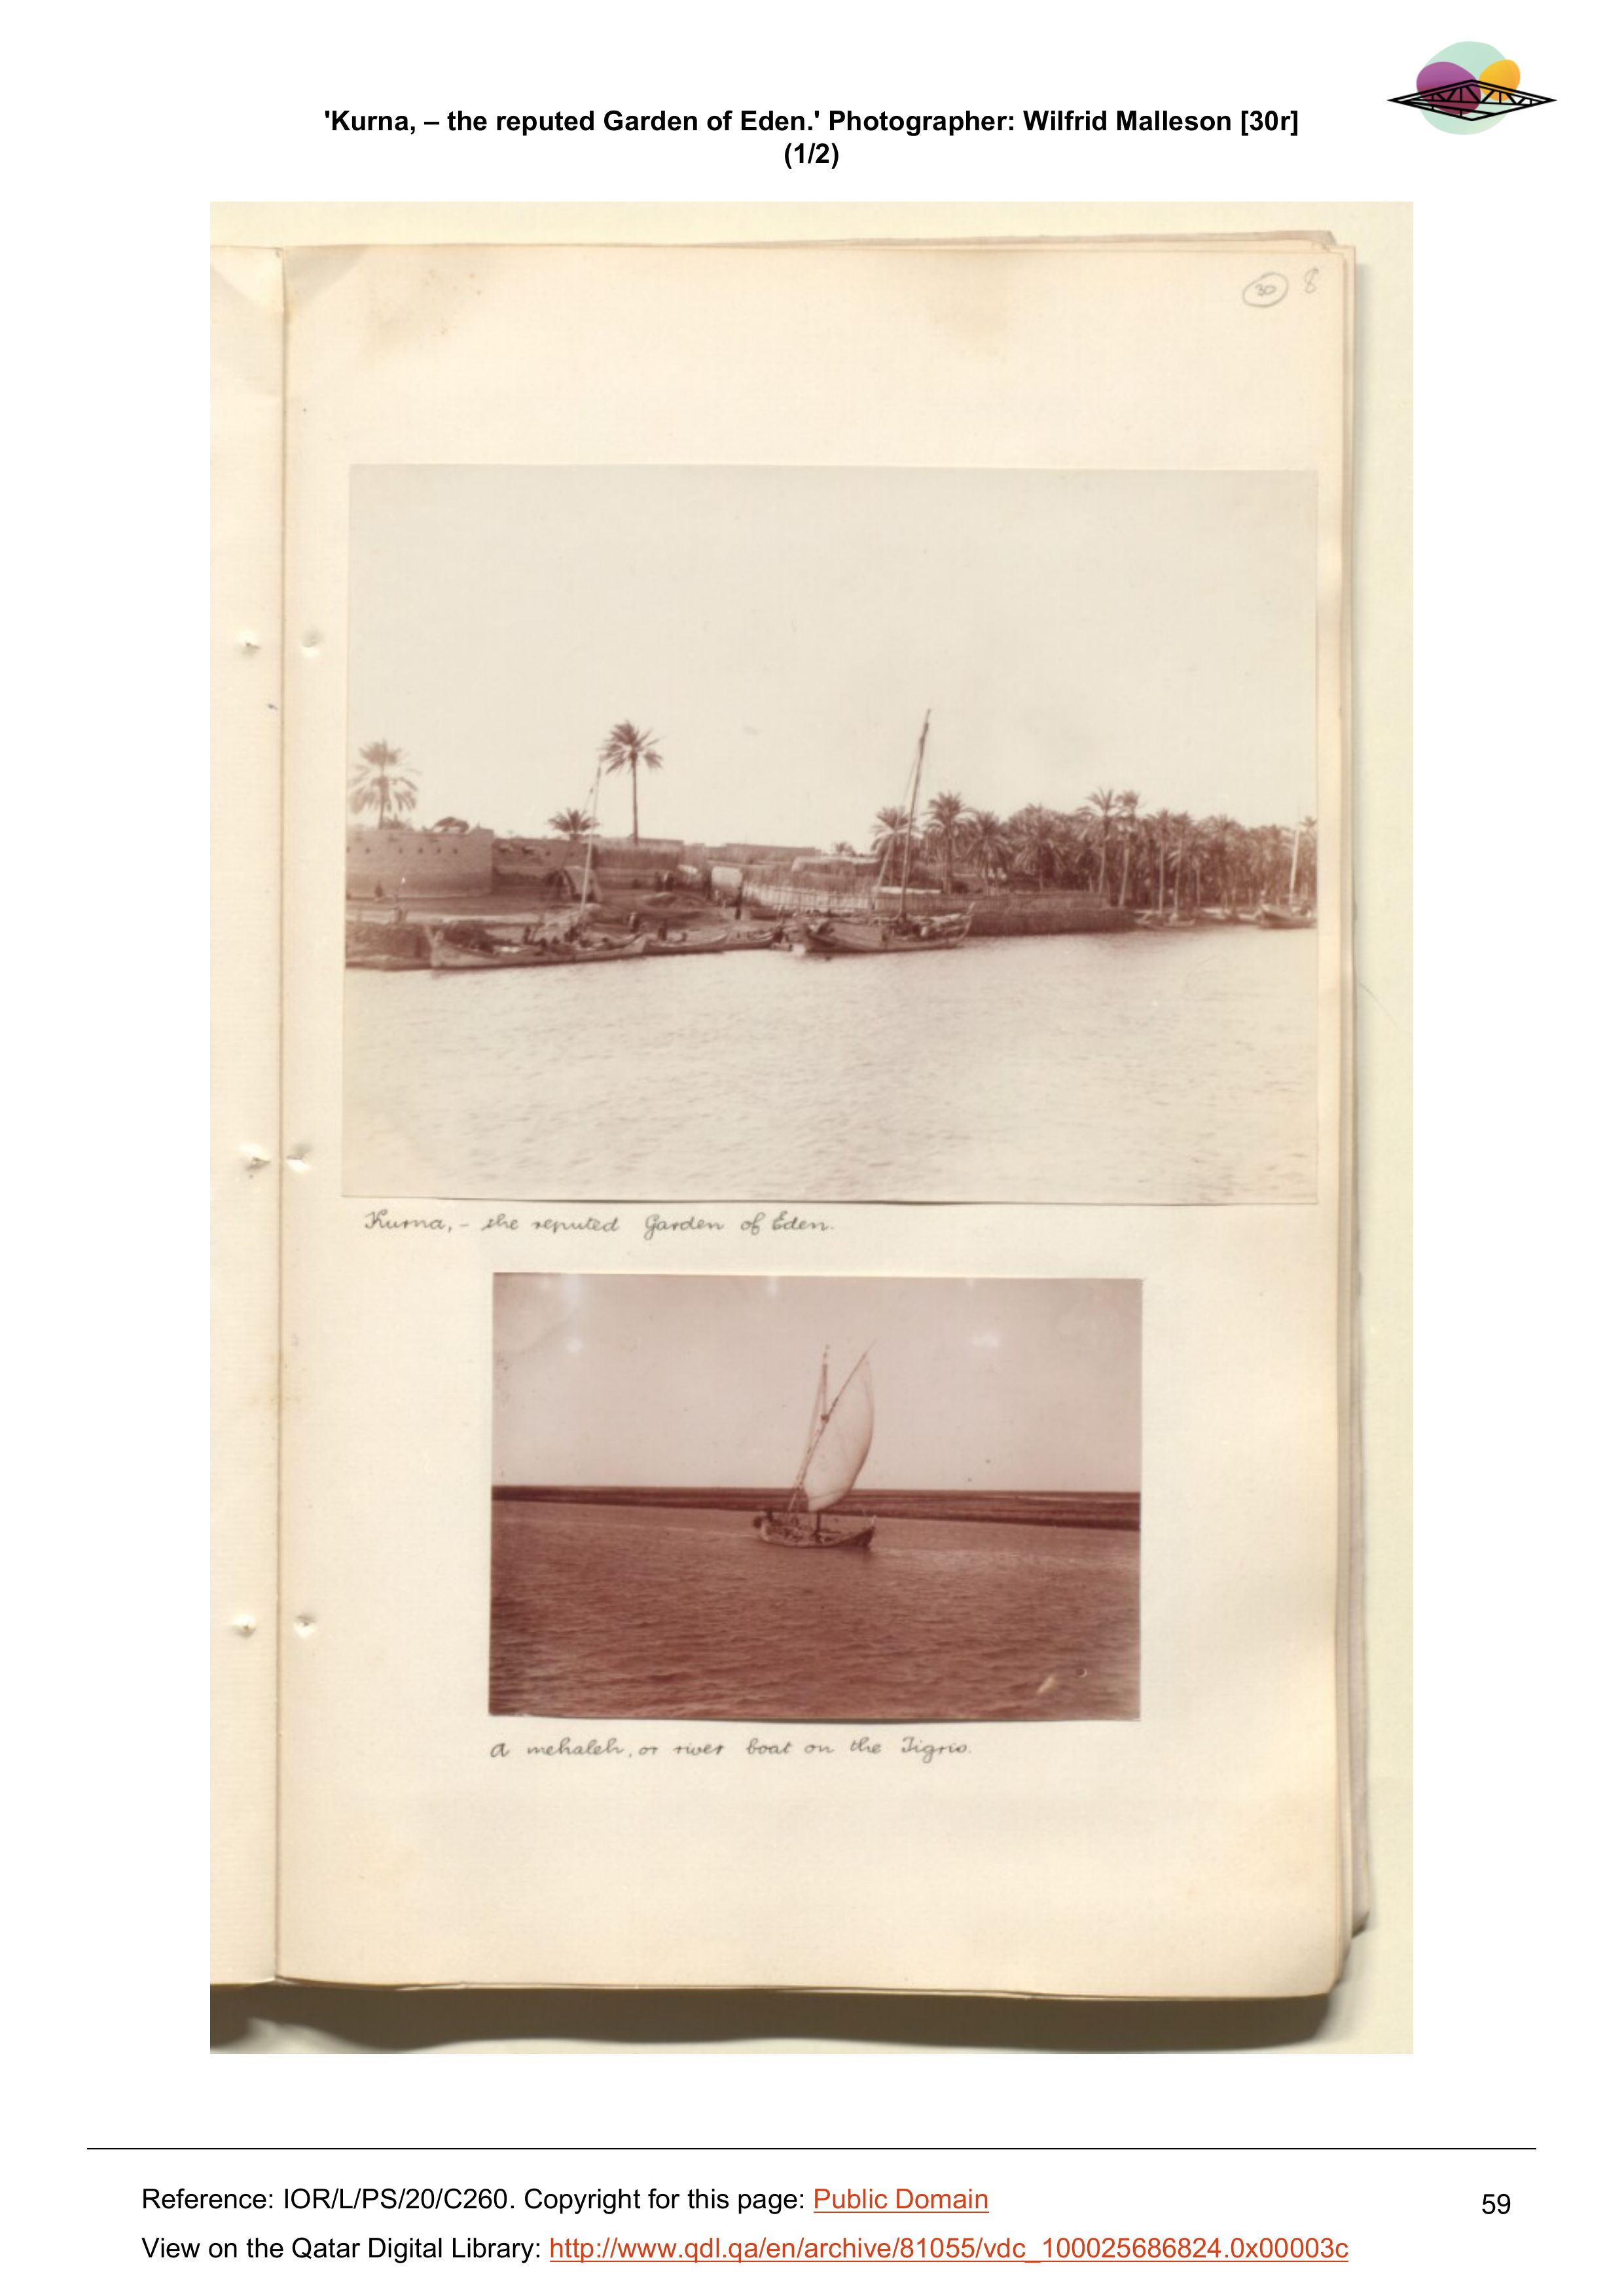 'Kurna, – the reputed Garden of Eden.' Photographer: Wilfrid Malleson [30r]
(1/2)
30 8
Kurna, - the reputed Garden of Eden.
A mehaleh, or river boat on the Tigris.
Reference: IOR/L/PS/20/C260. Copyright for this page: Public Domain
59
View on the Qatar Digital Library: http://www.qdl.qa/en/archive/81055/vdc_100025686824.0x00003c